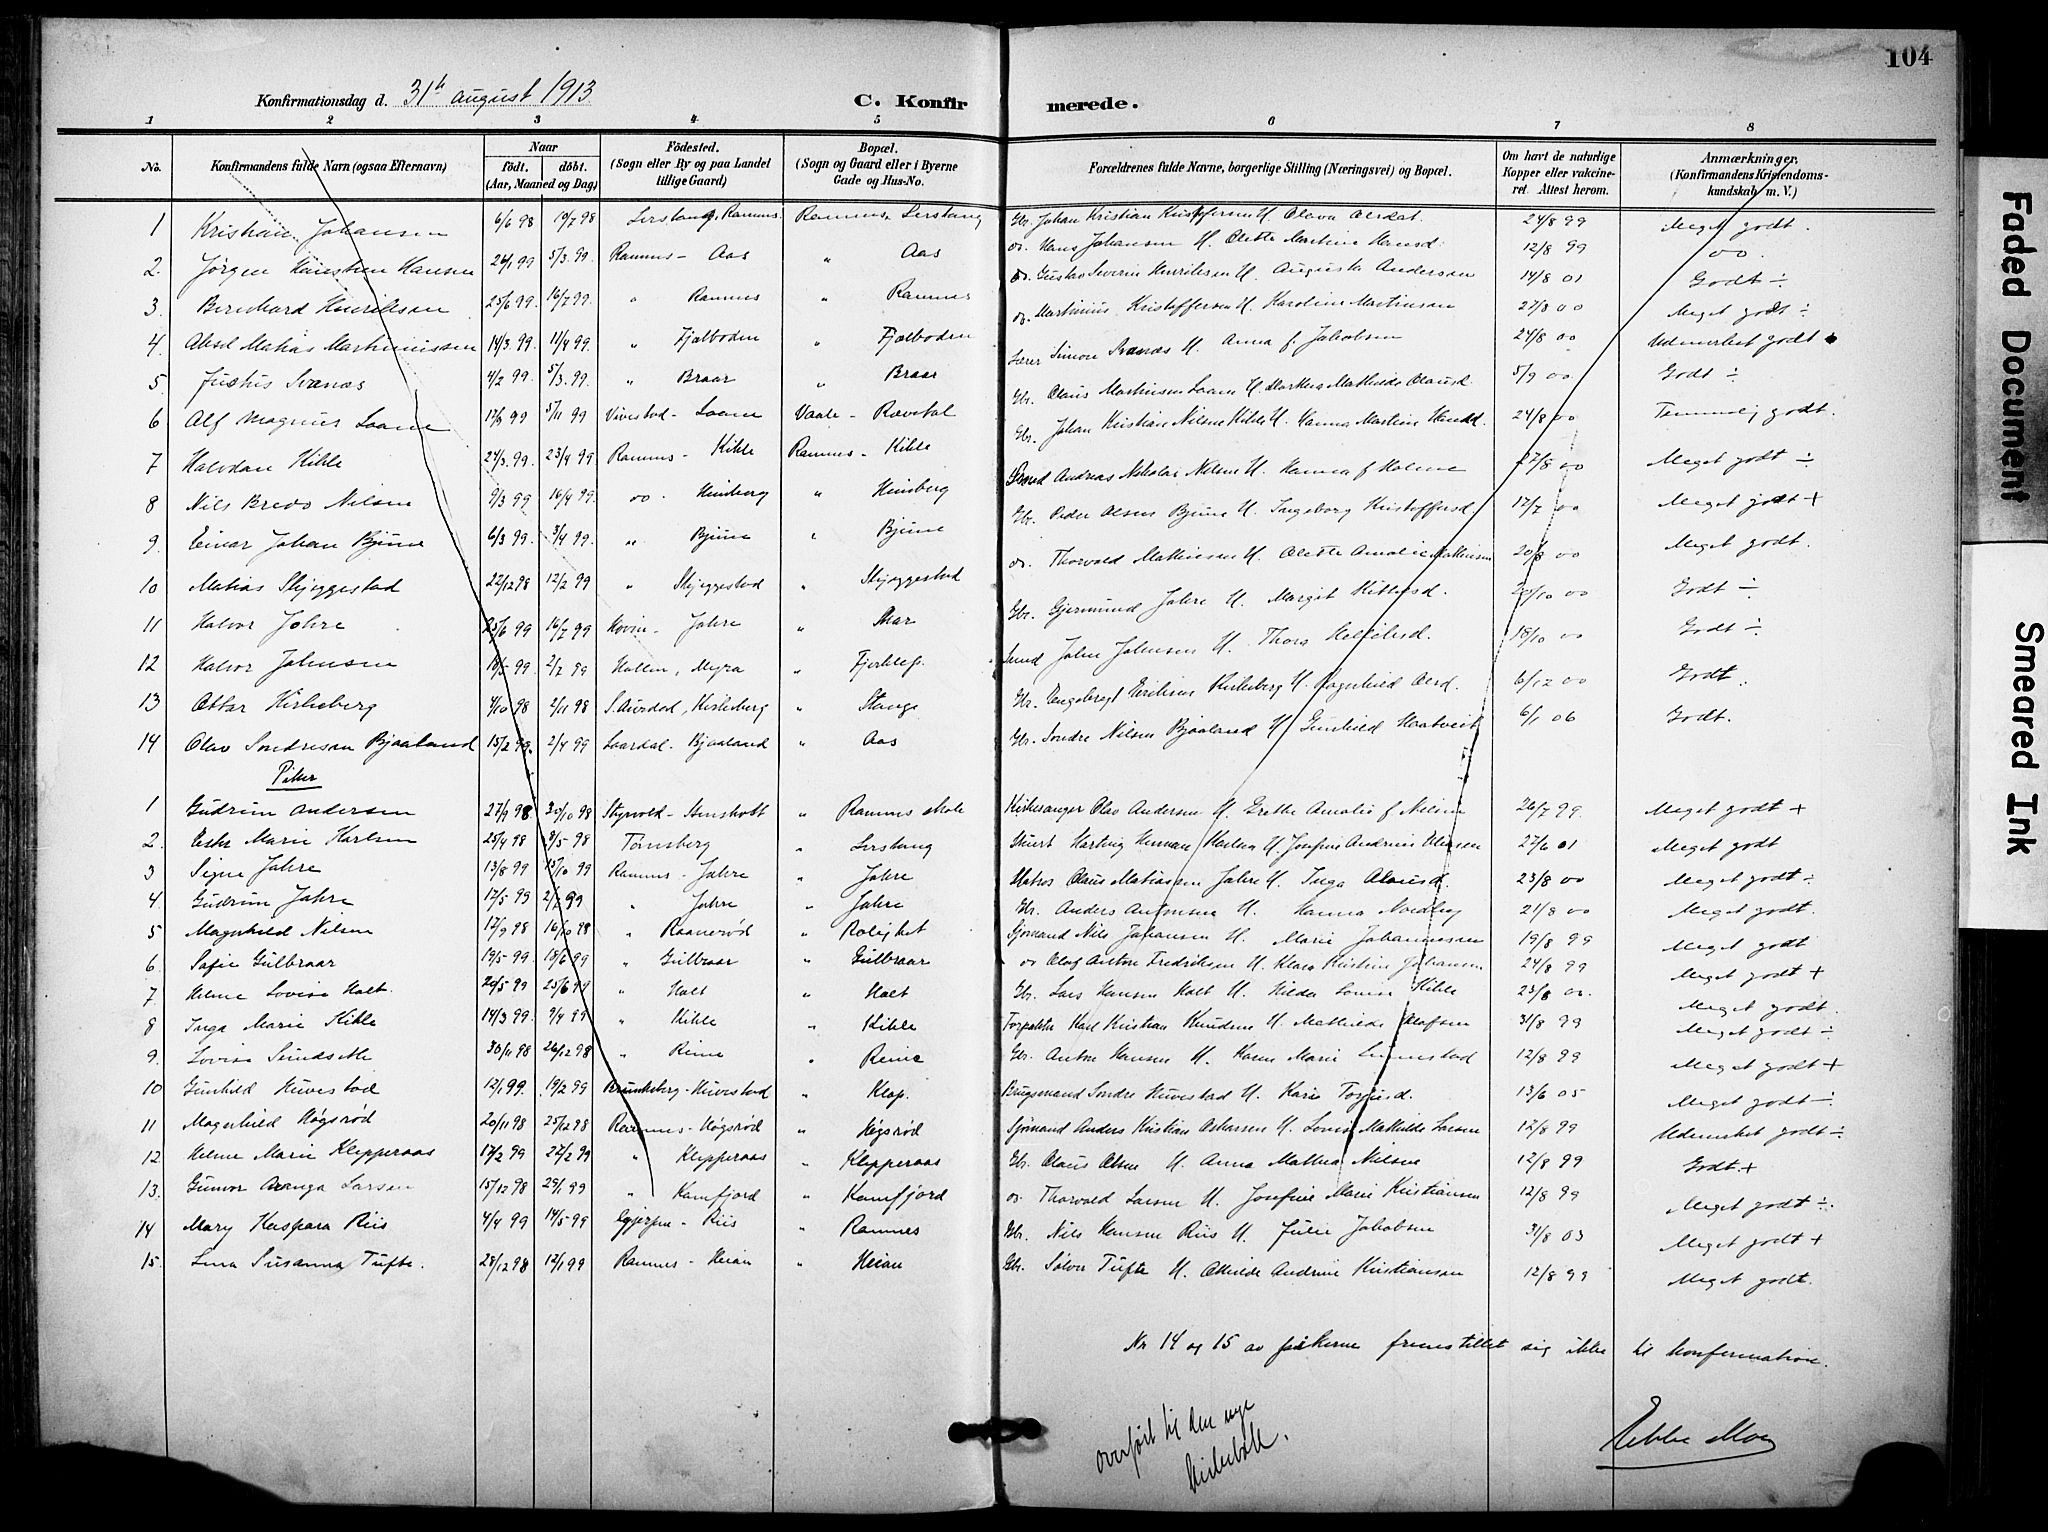 104
Konfirmationsdag d. 31th august 1913 C. Konfirmerede.
1 2 3 4 5 6 7 8
No. Konfirmandens fulde Navn (ogsaa Efternavn) Naar født. døbt. (Aar, Maaned og Dag) Fødested. (Sogn eller By og paa Landet tillige Gaard) Bopæl. (Sogn og Gaard eller i Byerne Gade og Hus-No. Forældrenes fulde Navne, borgerlige Stilling (Næringsvei) og Bopæl. Om havt de naturlige Kopper eller vakcineret. Attest herom. Anmærkninger, (Konfirmandens Kristendomskundskab m. V.)
1 Kristian Johansen 6/6 98 19/7 98 Lerstang, Ramnes Ramnes Lerstang Gbr. Johan Kristian Kristoffersen U. Olava Olsdat. 24/8 99 Meget godt.
2. Jørgen Kristian Hansen 24/1 99 5/3 99. Ramnes - Aas " Aas do. Hans Johansen U. Olette Martine Hansd. 12/8 99 do.
3. Bernhard Henriksen 25/6 99. 16/7 99. " Ramnes " Ramnes do. Gustav Severin Henriksen U. Augusta Andersen 14/8 01 Godt ÷
4. Aksel Matias Martiniussen 14/3. 99. 11/4 99. " Fjælboden " Fjælboden do. Martinius Kristoffersen U. Karoline Martinsen 27/8 00 Meget godt ÷
5. Justus Svenæs 4/2 99. 5/3. 99. " Braar " Braar Lærer Simon Svenæs U. Anna f. Jakobsen 24/8 00 Udmerket godt
6 Alf Magnus Laane 17/9 99 5/11 99 Vivestad - Laane Vaale - Rævetal Gbr. Olaus Martinsen Laane U. Marthea Mathilde Olausd. 5/9 00 Godt ÷
7 Halvdan Kihle 24/3. 99. 23/4 99 Ramnes - Kihle Ramnes - Kihle Gbr. Johan Kristian Nilsen Kihle U. Hanna Martine Hansd. 24/8 00 Temmelig godt.
8 Nils Bredo Nilsen 9/3 99 16/4 99. do. Heinberg " Heinberg Smed Andreas Nikolai Nilsen U. Hanna f Holme 27/8 00 Meget godt ÷
9. Einar Johan Bjune 6/3 99. 3/4 99. " Bjune " Bjune Gbr. Peder Olsen Bjune U. Ingeborg Kristoffersd. 17/7 00 Meget godt +
10 Matias Skjeggestad 22/12 98 12/2 99 " Skjeggestad " Skjeggestad do. Thorvald Mathisen U. Olette Amalie Mathisen 20/8 00 Meget godt.
11 Halvor Jahre 25/6 99 16/7 99 Hovin - Jahre " Skar Gbr. Gjermund Jahre U. Margit Kittilsd. 20/10 00 Godt ÷
12 Halvor Johnsen 18/5 99 2/7 99 Hollen, Myra " Smed John Johnsen U. Thora 18/10 00 Godt ÷
13 Ottar Kirkeberg 4/10 98 2/11 98 S. Aurdal, Kirkeberg " Stange Gbr. Engebregt Eriksen Kirkeberg U. Ragnhild Olsd. 6/12 00 Godt
14 Olav Sondresen Bjaaland 15/2 99. 2/4 99 Laardal - Bjaaland " Aas Gbr. Sondre Nilsen Bjaaland U. Gunhild Haatveit 6/1 06 Godt.
Piker
1 Gudrun Andersen 27/9 98 30/10 98 Styrvold - Stensholt " Ramnes skole Kirkesanger Olav Andersen U. Grethe Amalie f Nilsen 26/7 99 Meget godt +
2. Esther Marie Karlsen 25/4 98 9/5 98 Tønsberg " Lerstang Stuert Hartvig Herman Karlsen U. Josefine Andrine Olausen 27/6 01 Meget godt
3 Signe Jahre 13/8 99 15/10 99 Ramnes - Jahre " Jahre Matros Olaus Matiassen Jahre U. Inga Olausd. 23/8 00 Meget godt ÷
4. Gudrun Jahre 17/5 99 2/7 99 " Jahre " Jahre Gbr. Anders Antonsen U. Hanna Nordby 21/8 00 Meget godt.
5 Magnhild Nilsen 17/9 98 16/10 98 " Raanerød " Rolighet Sjømand Nils Johansen U. Marie Johannesen 19/8 99 Meget godt
6. Sofie Gulbraar 19/5 99 18/6 99 " Gulbraar " Gulbraar do Olaf Anton Fredriksen U. Klara Kristine Johansen 24/8 99 Meget godt +
7 Helene Lovise Holt. 20/5 99 25/6 99 " Holt " Holt Gbr. Lars Hansen Holt U. Hilda Lovise Kihle 23/8 00. Meget godt.
8 Inga Marie Kihle 14/3 99. 9/4 99 " Kihle " Kihle Torpalette Karl Kristian Knudsen U. Mathilde Olafsen 31/8 99 Meget godt ÷
9. Lovise Sundsette 30/11 98 26/12 98 " Reine " Reine Gbr. Anton Hansen U. Karen Marie Linnestad 12/8 99 Meget godt +
10 Gunhild Huvestad 12/1 99. 19/2 99 Brunkeberg - Huvestad " Klop. Brugsmand Sondre Huvestad U. Kari Torjusd. 13/6 05 Meget godt ÷
11 Magnhild Høgsrød 20/11 98 25/12 98 Ramnes - Høgsrød " Høgsrød Sjømand Anders Kristian Oskarsen U. Lovise Mathilde Larsen 12/8 99 Udmerket godt ÷
12 Helene Marie Klepperaas 17/2 99 27/2 99 " Klepperaas " Klepperaas Gbr. Olaus Olsen U. Anna Mathea Nilsen 12/8 99 Godt. +
13. Gunvor Aranga Larsen 15/12 98 29/1 99 " Kamfjord " Kamfjord do Thorvald Larsen U. Josefine Marie Kristiansen 12/8 99 Meget godt ÷
14 Mary Kaspara Riis 4/4 99 14/5 99 Gjerpen - Riis " Ramnes Gbr. Nils Hansen Riis U. Julie Jakobsen 31/8 03 Meget godt +
15. Lina Susanna Tufte. 28/12 98 12/1 99 Ramnes - Heian " Heian Gbr. Sølver Tufte U. Otthilde Andrine Kristiansen 12/8 99 Meget godt.
Nr 14 og 15 av pikerne fremstillet sig ikke til konfirmation.
overført til den nye
kirkebok.
Ebbe Moe
Faded Document
Smeared Ink